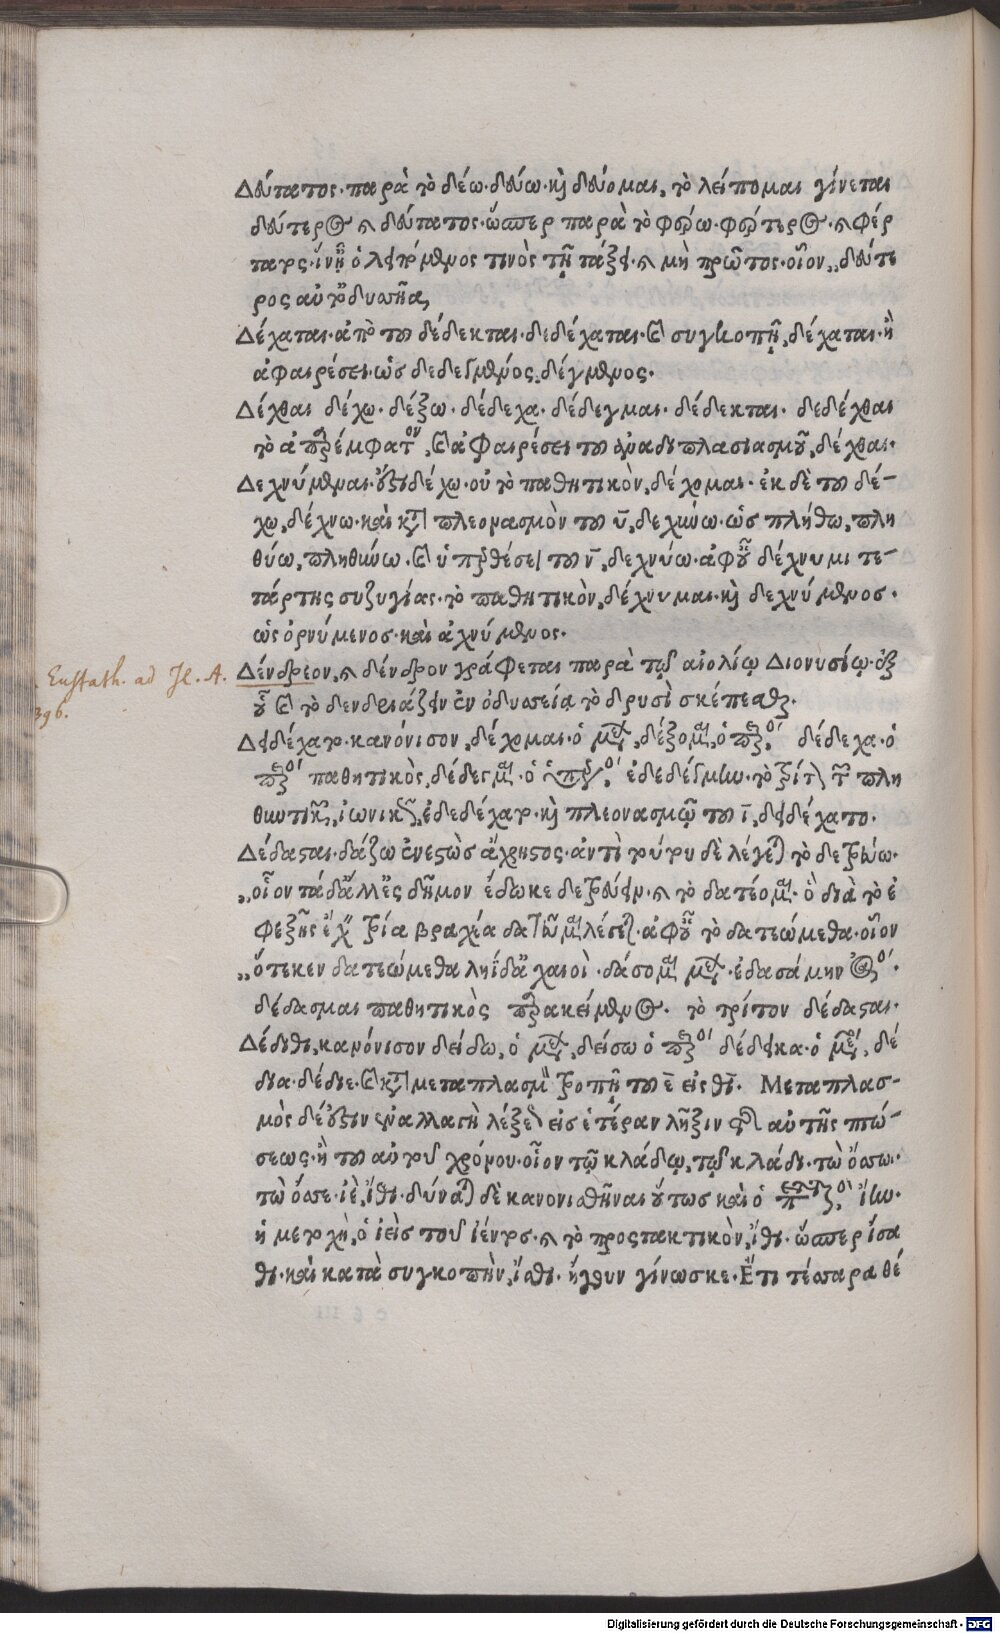 Δεύτατος· παρὰ τὸ δέω· δεύω· καὶ δεύομαι, τὸ λείπομαι γίνεται
δεύτερος καὶ δεύτατος· ὥσπερ παρὰ τὸ φέρω· φέρτερος· καὶ φέρ
τατος· ἵν' ᾖ ὁ λειπόμενος τινὸς τῇ τάξει· καὶ μὴ πρῶτος· οἷον,, δεύτε
ρος αὖτ' ὀδυσῆα,
Δέχαται· ἀπὸ τοῦ δέδεκται· δεδέχαται· καὶ συγκοπῇ, δέχαται· ἢ
ἀφαιρέσει· ὡς δεδεγμένος, δέγμενος.
Δέχθαι δέχω· δέξω· δέδεχα· δέδεγμαι· δέδεκται· δεδέχθαι
τὸ ἀπαρέμφατον, καὶ ἀφαιρέσει τοῦ ἀναδιπλασιασμοῦ, δέχθαι·
Δεχνύμεναι· ἔστι δέχω· οὗ τὸ παθητικὸν, δέχομαι· ἐκ δὲ τοῦ δέ-
χω, δέχνω· καὶ κατὰ πλεονασμὸν τοῦ υ, δεχύνω· ὡς πλήθω, πλη
θύω, πληθύνω· καὶ ὑπερθέσει τοῦ ν, δεχνύω· ἀφ' οὗ δέχνυμι τε-
τάρτης συζυγίας· τὸ παθητικὸν, δέχνυμαι· καὶ δεχνύμενος·
ὡς ὀρνύμενος· καὶ ἀχνύμενος.
Eustath. ad Il. A. Δένδρεον, καὶ δένδρον γράφεται παρὰ τῷ αἰολίῳ Διονυσίῳ· ἐξ
396. οὗ καὶ τὸ δενδριάζειν ἐν ὀδυσσείᾳ τὸ δρυσὶ σκέπεσθαι.
Δειδέχατο· κανόνισον, δέχομαι· ὁ μέλλων, δέξομαι, ὁ παρακείμενος, δέδεχα· ὁ
παρακείμενος παθητικὸς, δέδεγμαι· ὁ ὑπερσυντέλικος, ἐδεδέγμην· τὸ τρίτον τῶν πλη
θυντικῶν, ἰωνικῶς, ἐδεδέχατο· καὶ πλεονασμῷ τοῦ ι, δειδέχατο.
Δέδασται· δάζω ἐνεστὼς ἄχρηστος· ἀντὶ τούτου δὲ λέγεται τὸ δατρεύω·
,,οἷον τάδ' ἄλλ' ἐς δῆμον ἔδωκε δαιτρεύειν· καὶ τὸ δατέομαι· ὃ διὰ τὸ ἐ
φεξῆς ἔχειν τρία βραχέα δατεῦμαι λέγεται· ἀφ' οὗ τὸ δατεώμεθα· οἷον
,,ὅτε κεν δατεώμεθα ληΐδ' ἀχαιοί· δάσομαι μέλλων· ἐδασάμην ἀόριστος·
δέδασμαι παθητικὸς παρακείμενος. τὸ τρίτον δέδασται·
Δέδιθι, κανόνισον δείδω, ὁ μέλλων, δείσω ὁ παρακείμενος δέδεικα· ὁ μέσος, δέ
δια· δέδιε· καὶ κατὰ μεταπλασμὸν τροπῇ τοῦ ε εἰς θι. Μεταπλασ-
μὸς δέ ἐστιν ἐναλλαγὴ λέξεως εἰς ἑτέραν λῆξιν ἐπὶ αὐτῆς πτώ-
σεως· ἢ τοῦ αὐτοῦ χρόνου· οἷον τῷ κλάδῳ, τῷ κλάδι· τὼ ὄσσω·
τὼ ὄσσε· ἴε, ἴθι· δύναται δὲ κανονισθῆναι οὕτως καὶ ὁ ἐνεστώς, ἴημι·
ἡ μετοχὴ, ὁ ἰεὶς τοῦ ἰέντος· καὶ τὸ προστακτικὸν, ἴθι· ὥσπερ ἴσα
θι· καὶ κατὰ συγκοπὴν, ἴσθι· ἤγουν γίνωσκε. Ἔτι τέσσαρα θέ